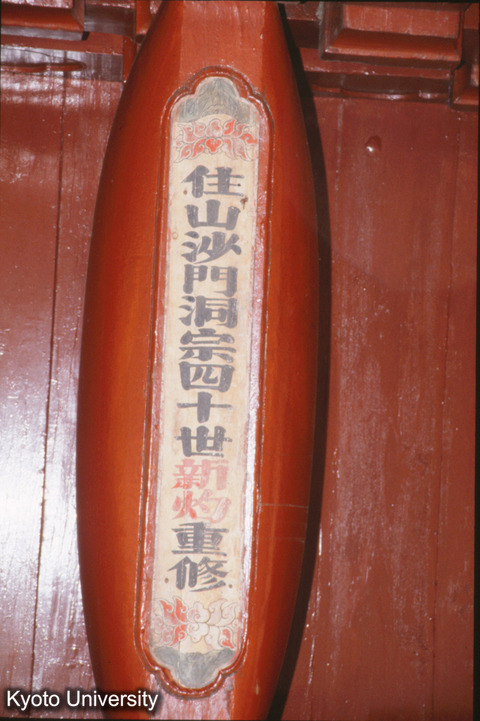 住山沙門洞宗四十世新灼重修
Kyoto University